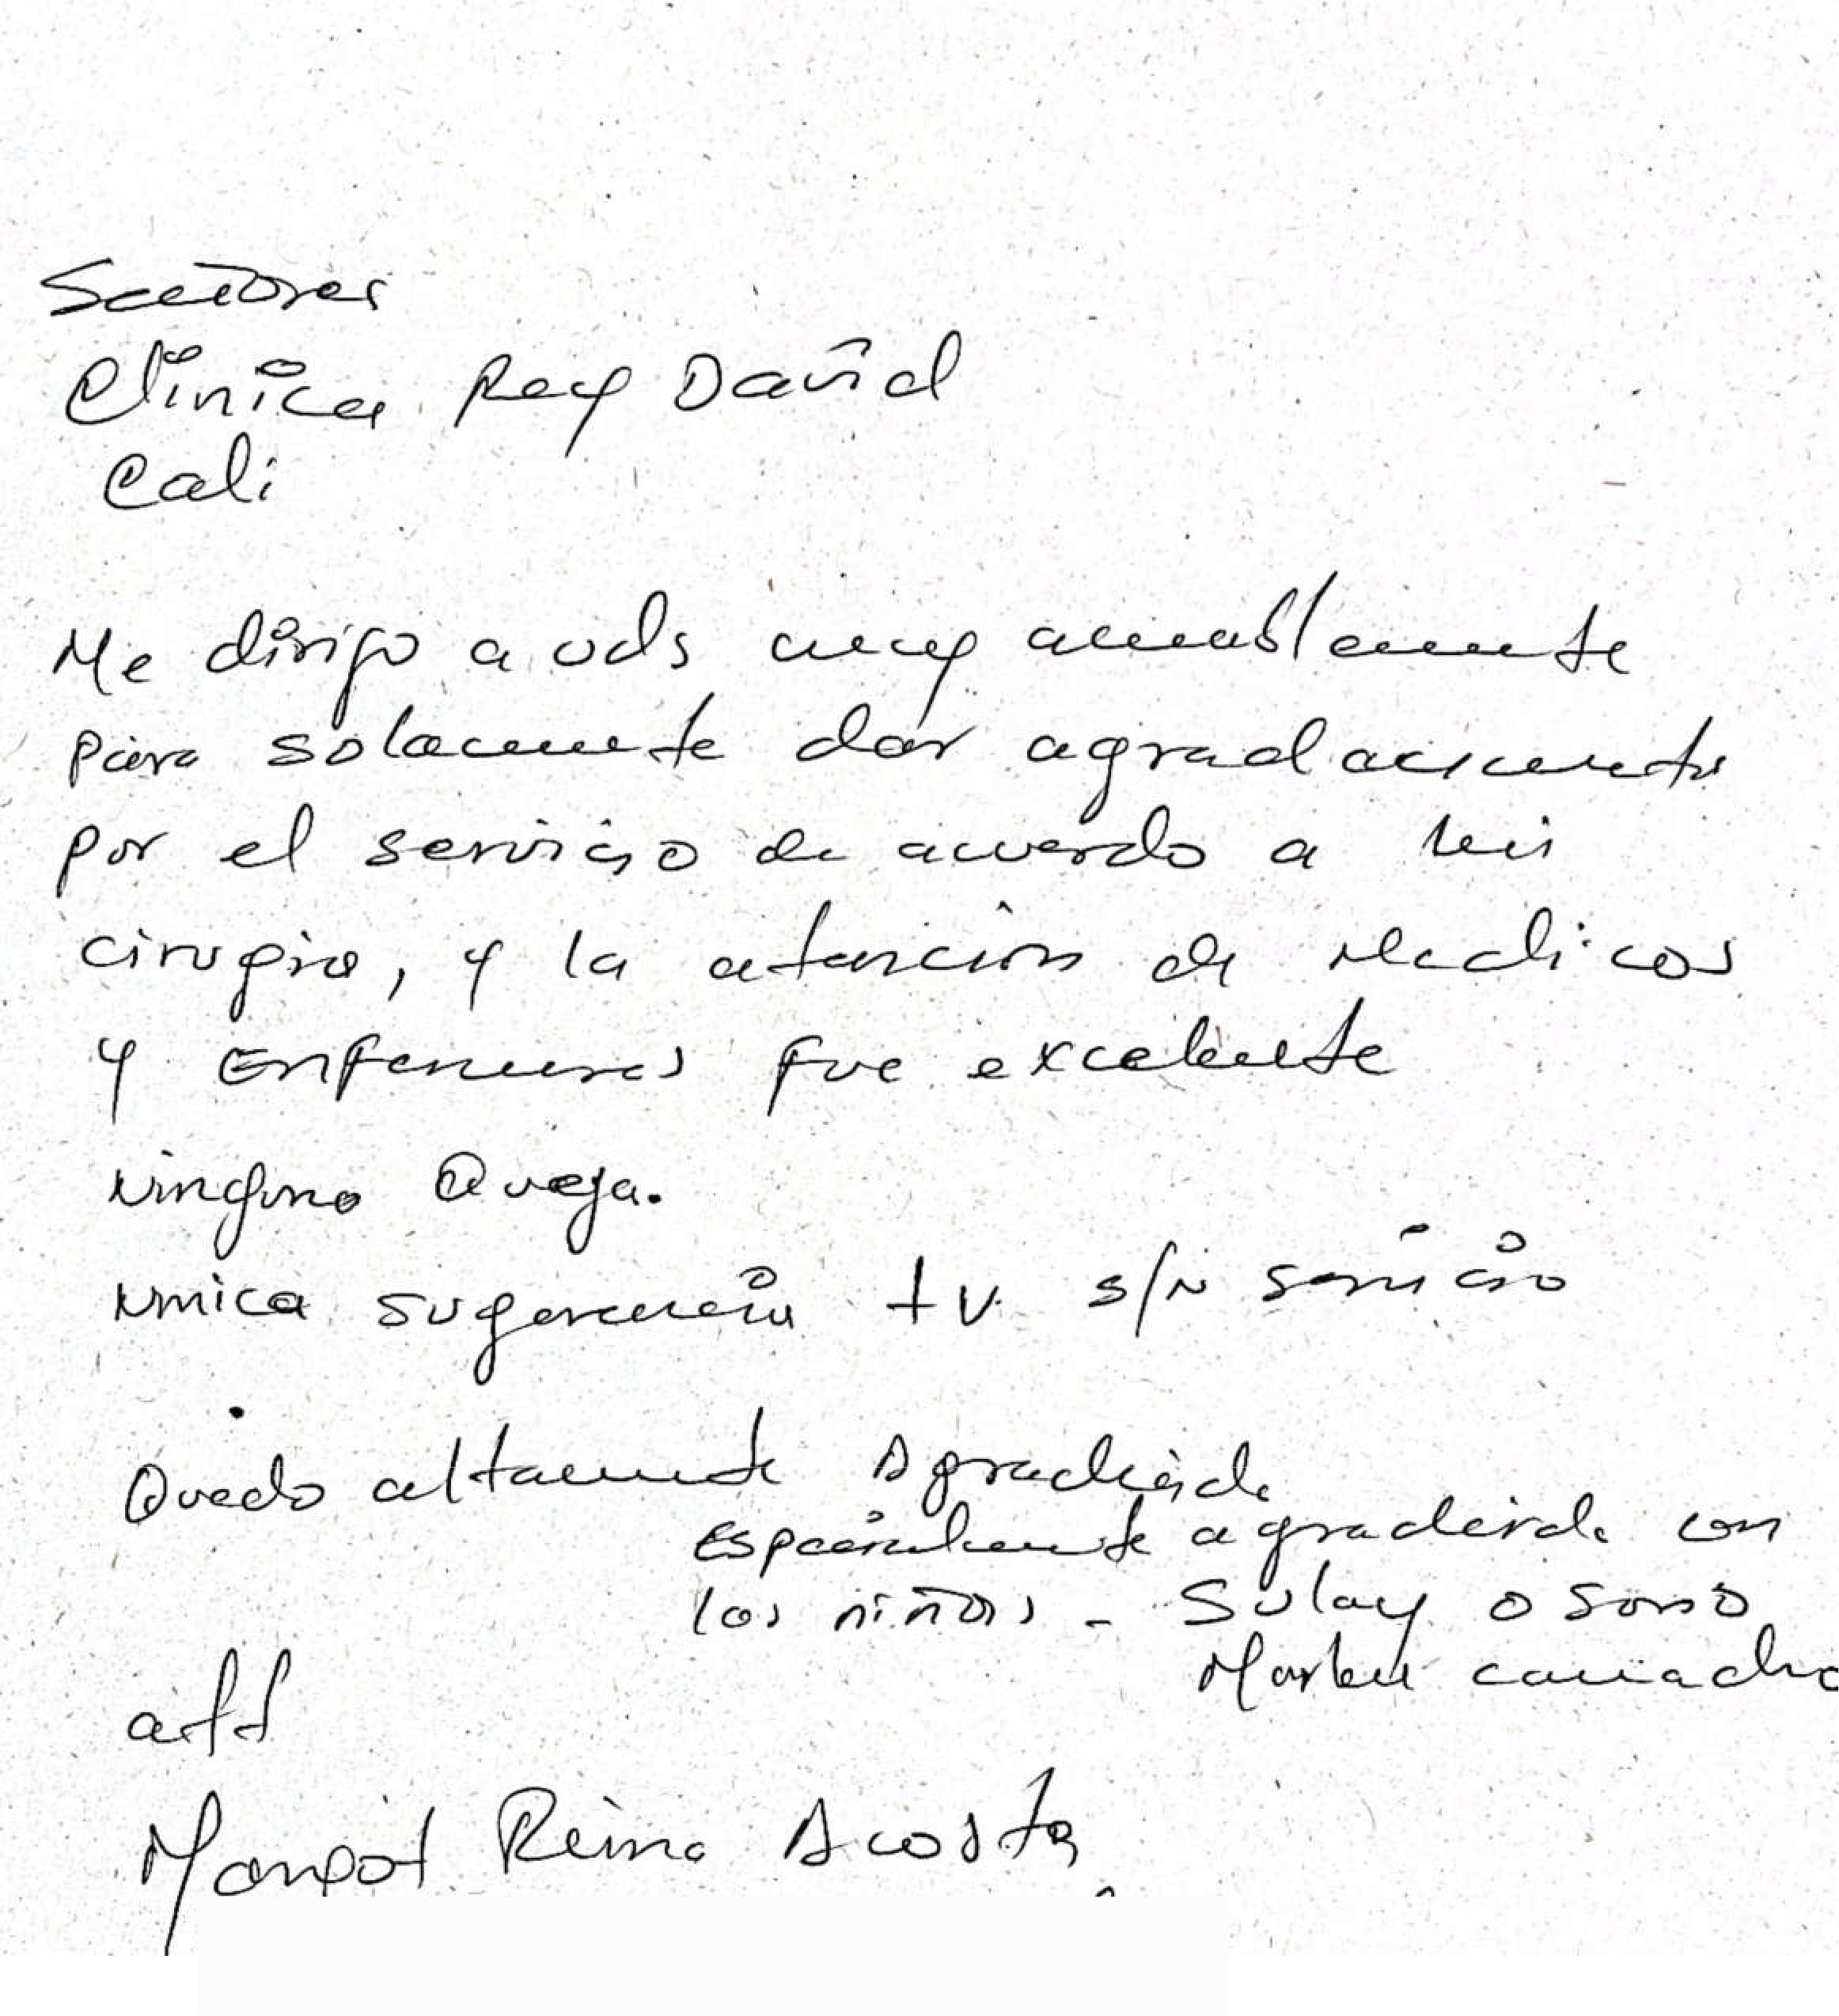 Señores
Clinica Rey David
Cali
Me dirijo a uds muy amablemente
para solamente dar agradacimiento
por el servicio de acuerdo a mi
cirugia, y la atención de Medicos
y Enfermeras fue excelente
Ninguna Queja.
Unica sugerencia tv s/n servicio
Quedo altamente Agradecida
Especialmente agradecida con
los niños - Sulay Osorio
Marleu camacho
att
Margot Reina Acosta